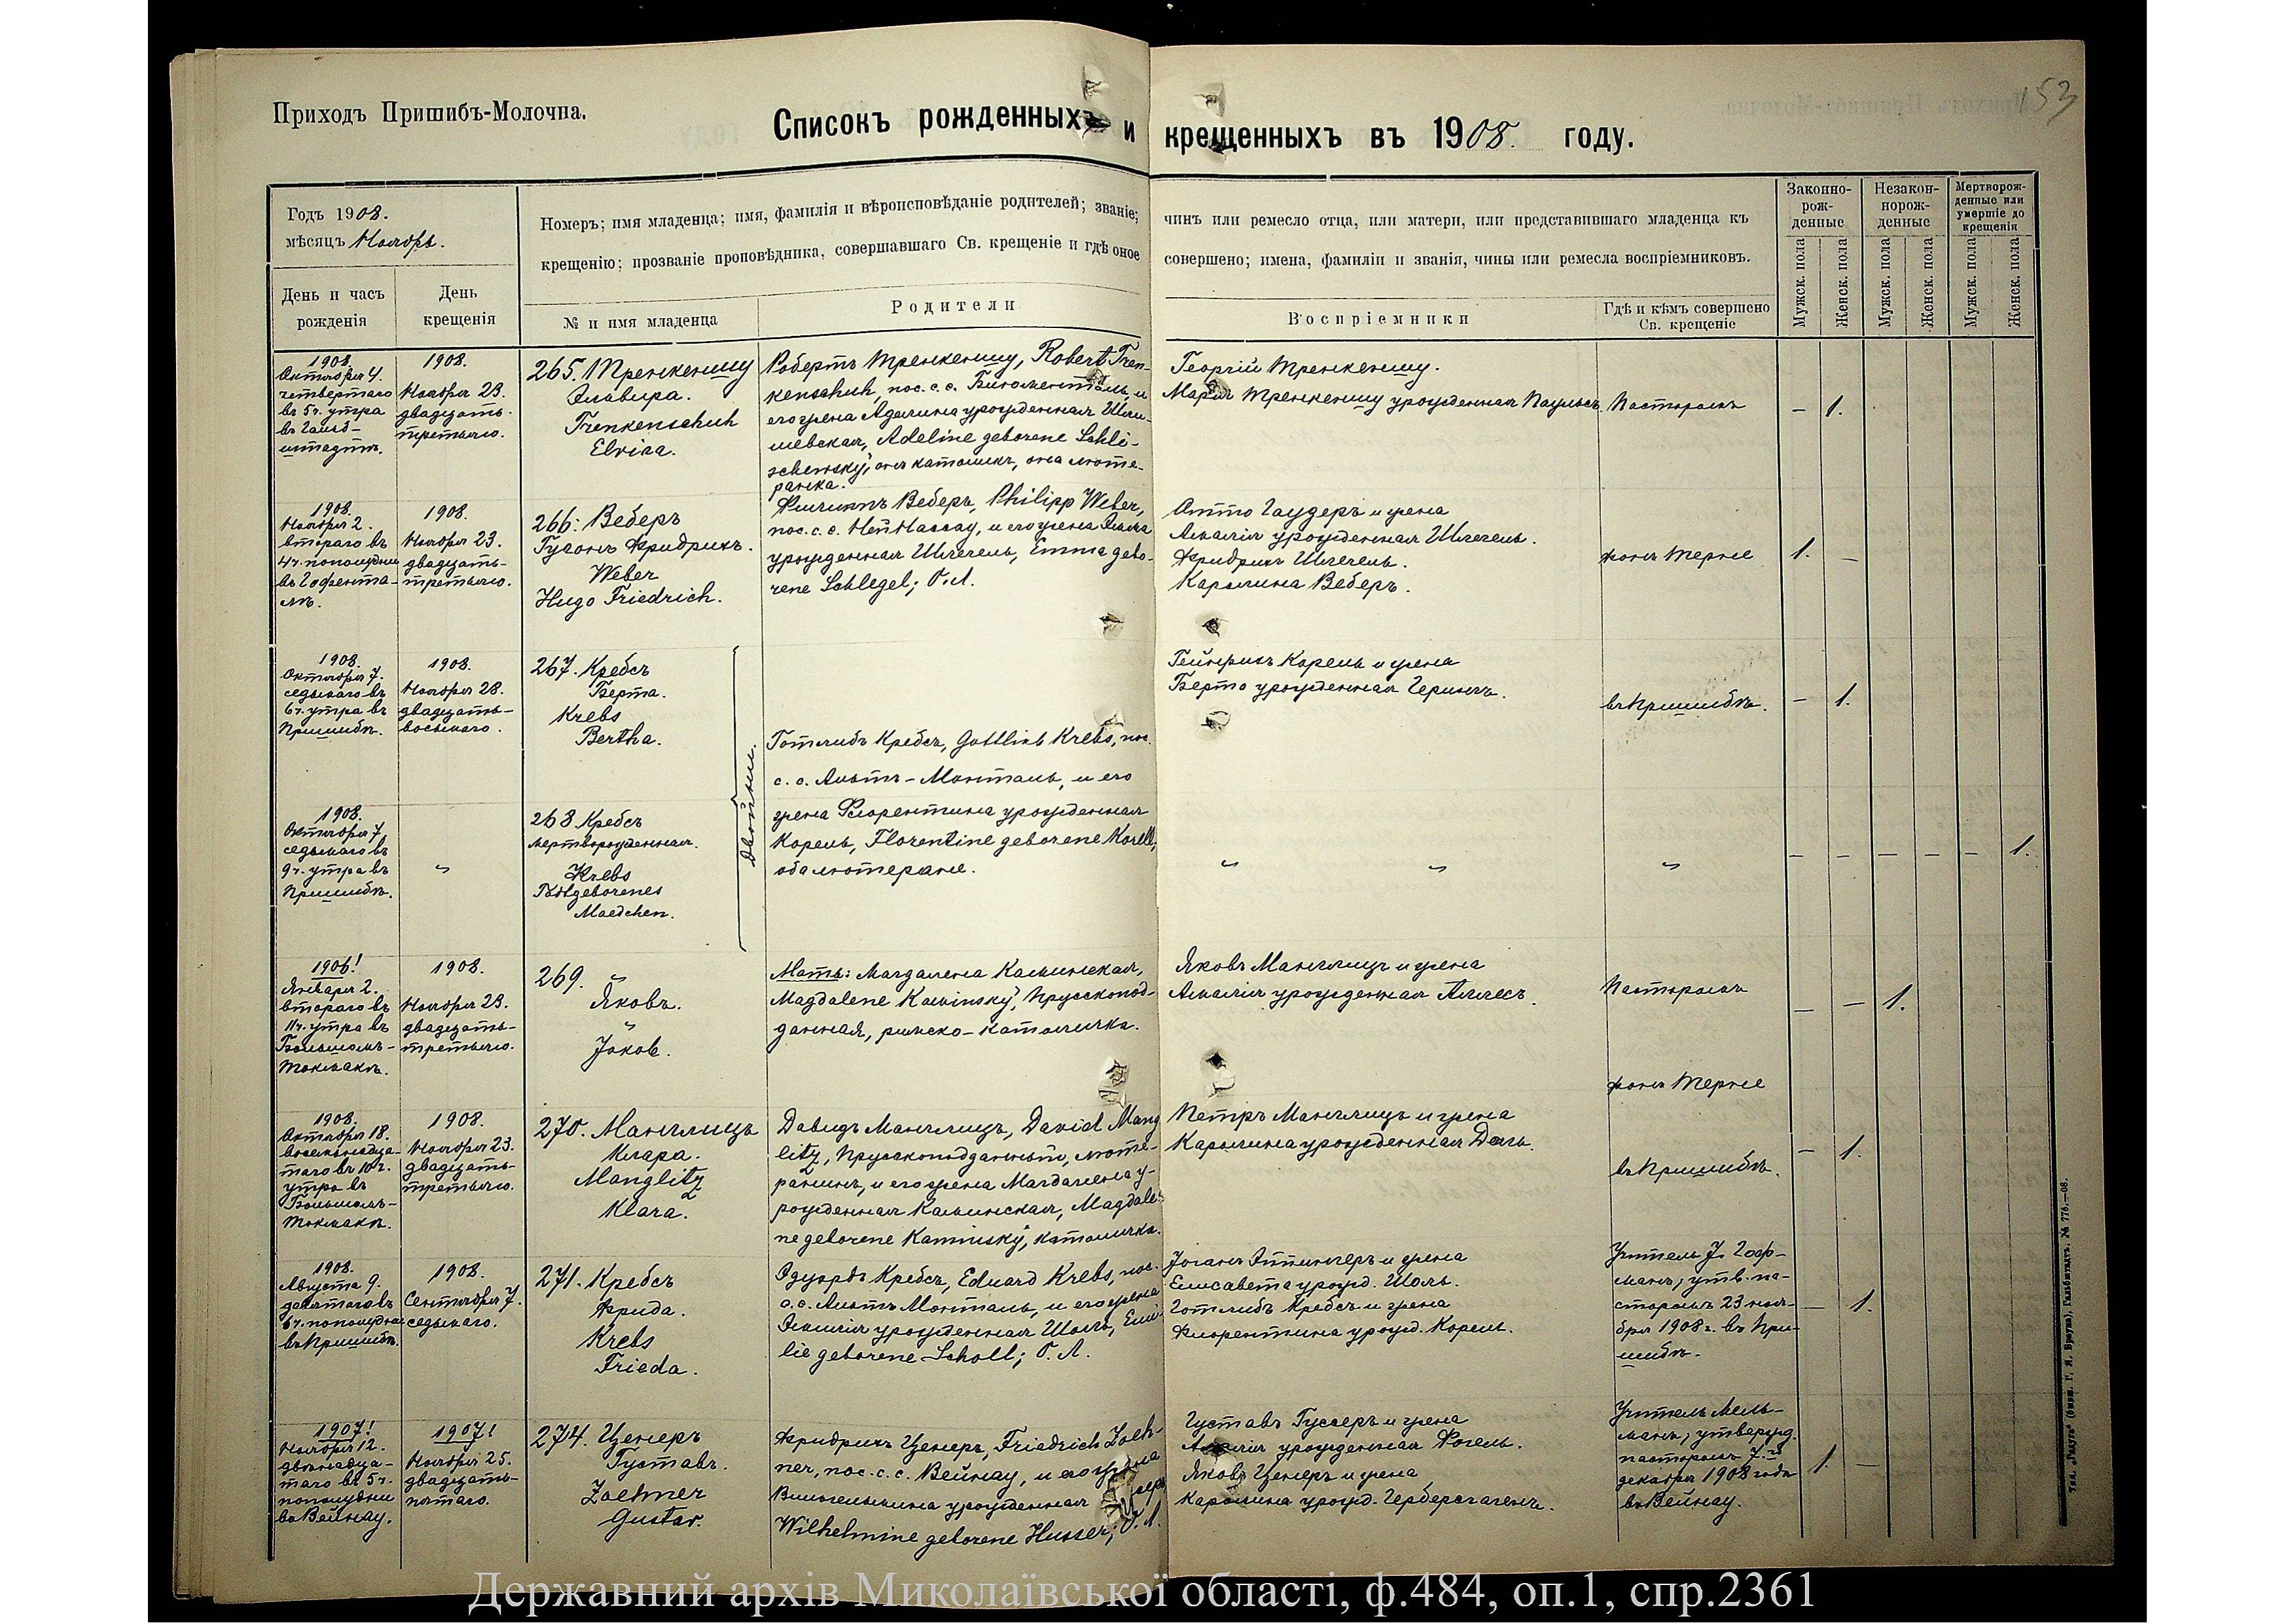 Приходъ Пришибъ-Молочна.
153
Списокъ рожденныхъ и крещенныхъ въ 1908. году.
Годъ 1908.
мѣсяцъ Ноябрь.
Номеръ; имя младенца; имя, фамилія и вѣроисповѣданіе родителей; званіе; чинъ или ремесло отца, или матери, или представившаго младенца къ
крещенію; прозваніе проповѣдника, совершавшаго Св. крещеніе и гдѣ оное совершено; имена, фамиліи и званія, чины или ремесла воспріемниковъ.
День и часъ
рожденія
День
крещенія
№ и имя младенца
Родители
Воспріемники
Гдѣ и кѣмъ совершено
Св. крещеніе
Законно-
рож-
денные
Незакон-
норож-
денные
Мертворож-
денные или
умершіе до
крещенія
Мужск. пола
Женск. пола
Мужск. пола
Женск. пола
Мужск. пола
Женск. пола
1908.
Октября 4.
четвертаго
въ 5 ч. утра
въ Гальб-
штадтѣ.
1908.
Ноября 23.
двадцать-
третьяго.
265. Тренкеншу
Эльвира.
Trenkenschuh
Elvira.
Робертъ Тренкеншу, Robert Tren-
kenschuh, пос. с. с. Блюменталь, и
его жена Аделина урожденная Шли-
шевская, Adeline geborene Schli-
schewsky; онъ католикъ, она люте-
ранка.
Георгій Тренкеншу.
Марія Тренкеншу урожденная Паульсъ.
Пасторомъ
– 1.
1908.
Ноября 2.
втораго въ
4 ч. пополудни
въ Гофента-
лѣ.
1908.
Ноября 23.
двадцать-
третьяго.
266. Веберъ
Гугонъ Фридрихъ.
Weber
Hugo Friedrich.
Филиппъ Веберъ, Philipp Weber,
пос. с. с. Ней Нассау, и его жена Эмма
урожденная Шлегель, Emma gebo-
rene Schlegel; О. Л.
Отто Гаудеръ и жена
Амалія урожденная Шлегель.
Фридрихъ Шлегель.
Каролина Веберъ.
фонъ Терне
1. –
1908.
Октября 7.
седьмаго въ
6 ч. утра въ
Пришибѣ.
1908.
Ноября 28.
двадцать-
восьмаго.
267. Кребсъ
Берта.
Krebs
Bertha.
двойни.
Готлибъ Кребсъ, Gottlieb Krebs, пос.
с. с. Альтъ-Монталь, и его
жена Флорентина урожденная
Корель, Florentine geborene Korell,
оба лютеране.
Гейнрихъ Корель и жена
Берта урожденная Герингъ.
въ Пришибѣ.
– 1.
1908.
Октября 7.
седьмаго въ
9 ч. утра въ
Пришибѣ.
"
268 Кребсъ
мертворожденная.
Krebs
Todtgeborenes
Maedchen.
" " "
– – – – – 1.
1906!
Января 2.
втораго въ
11 ч. утра въ
Большомъ-
Токмакѣ.
1908.
Ноября 23.
двадцать-
третьяго.
269. "
Яковъ.
"
Jakob.
Мать: Магдалена Каминская,
Magdalene Kaminsky, Прусскопод-
данная, римско-католичка.
Яковъ Манглицъ и жена
Амалія урожденная Аллесъ.
Пасторомъ
– – 1.
фонъ Терне
1908.
Октября 18.
восемнадца-
таго въ 10 ч.
утра въ
Большомъ-
Токмакѣ.
1908.
Ноября 23.
двадцать-
третьяго.
270. Манглицъ
Клара.
Manglitz
Klara.
Давидъ Манглицъ, David Mang
litz, Прусскоподданный, люте-
ранинъ, и его жена Магдалена у-
рожденная Каминская, Magdale-
ne geborene Kaminsky, католичка.
Петръ Манглицъ и жена
Каролина урожденная Даль.
въ Пришибѣ.
– 1.
1908.
Августа 9.
девятаго въ
6 ч. пополудни
въ Пришибѣ.
1908.
Сентября 7.
седьмаго.
271. Кребсъ
Фрида.
Krebs
Frieda.
Эдуардъ Кребсъ, Eduard Krebs, пос.
с. с. Альтъ Монталь, и его жена
Эмилія урожденная Шолль, Emi
lie geborene Scholl; О. Л.
Іоганъ Эттингеръ и жена
Елисавета урожд. Шоль.
Готлибъ Кребсъ и жена
Флорентина урожд. Корель.
Учитель І. Гоф-
манъ, утв. па-
сторомъ 23 ноя-
бря 1908 г. въ При-
шибѣ.
– 1.
1907!
Ноября 12.
двѣнадца-
таго въ 5 ч.
пополудни
въ Вейнау.
1907!
Ноября 25.
двадцать-
пятаго.
274. Ценеръ
Густавъ.
Zoehner
Gustav.
Фридрихъ Ценеръ, Friedrich Zoeh-
ner, пос. с. с. Вейнау, и его жена
Вильгельмина урожденная
Wilhelmine geborene Husser; О. Л.
Густавъ Гуссеръ и жена
Амалія урожденная Фогель.
Яковъ Ценеръ и жена
Каролина урожд. Герберсгагенъ.
Учитель Мель-
манъ, утвержд.
пасторомъ 7-го
декабря 1908 года
въ Вейнау.
1. –
Тип. „Радуга“ (бывш. Г. Я. Брауна), Гальбштадтъ. № 776.—08.
Державний архів Миколаївської області, ф.484, оп.1, спр.2361